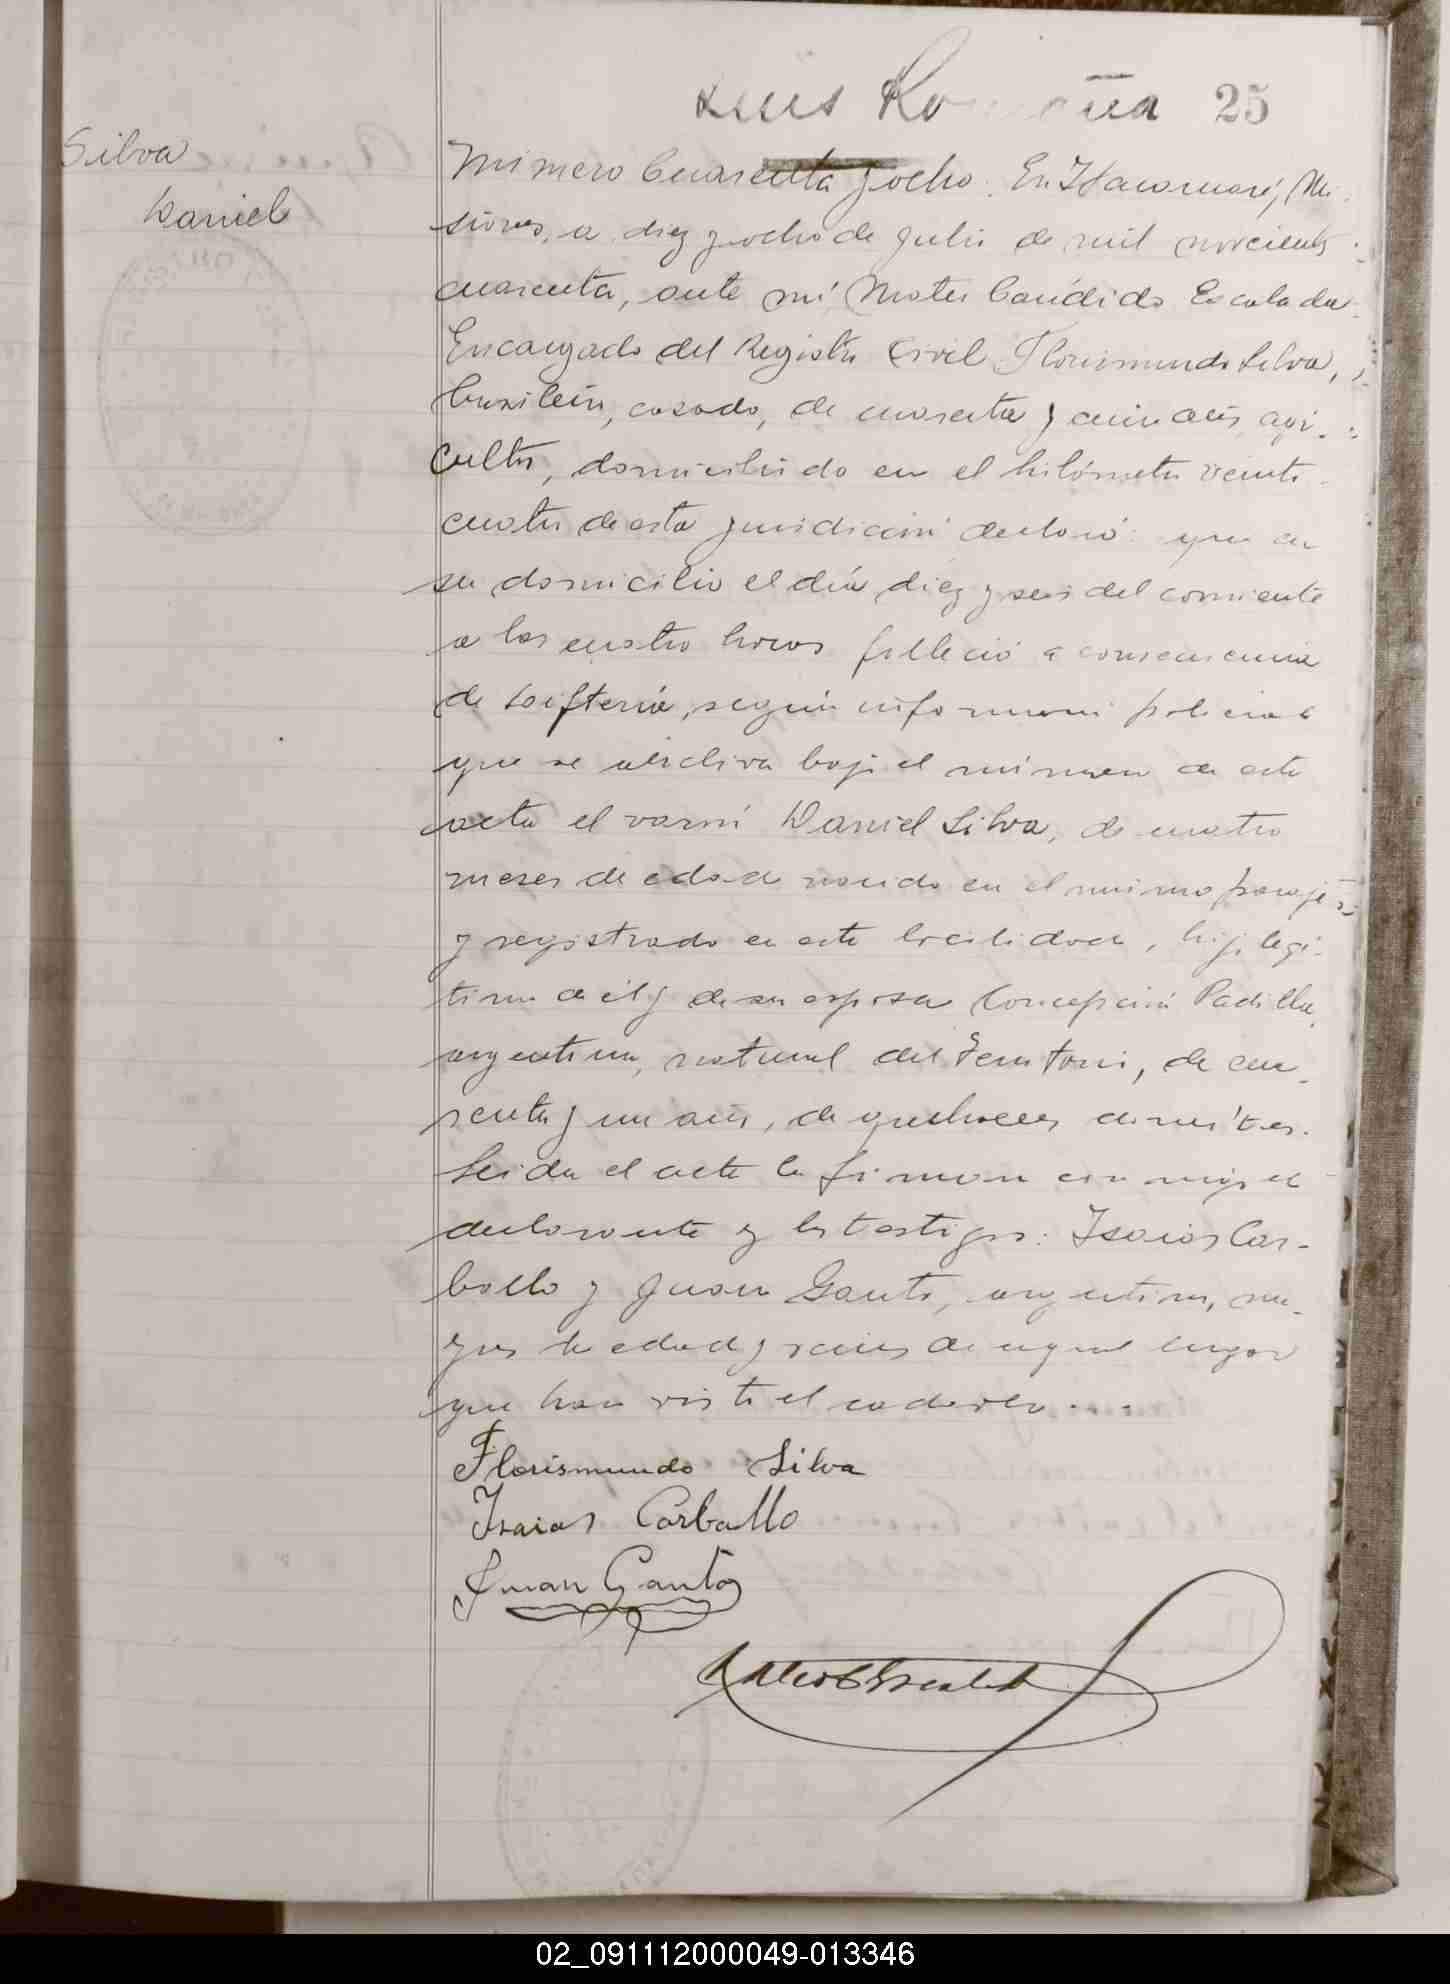 Luis Romaña 25
Silva
Daniel
Número Cuarenta y ocho. En Itacaruaré, Mi-
siones, a diez y ocho de julio de mil novecientos
cuarenta, ante mí, Mateo Cándido Escalada
Encargado del Registro Civil Florismundo Silva,
brasilero, casado, de cuarenta y cinco años, agri-
cultor, domiciliado en el kilómetro veinti-
cuatro de esta jurisdicción declaró: que en
su domicilio el día diez y seis del corriente
a las cuatro horas falleció a consecuencia
de difteria, según información policial
que se archiva bajo el número de este
acta el varón Daniel Silva, de cuatro
meses de edad nacido en el mismo paraje
y registrado en esta localidad, hijo legí-
timo de él y de su esposa Concepción Padilla,
argentina, natural del Territorio, de cua-
renta y un años, de quehaceres domésticos.
Leida el acta la firman conmigo el
declarante y los testigos: Isaias Car-
ballo y Juan Gauto, argentinos, ma-
yores de edad y vecinos de igual lugar
que han visto el cadáver. . .
Florismundo Silva
Isaias Carballo
Juan Gauto
Mateo C Escalada
02_091112000049-013346